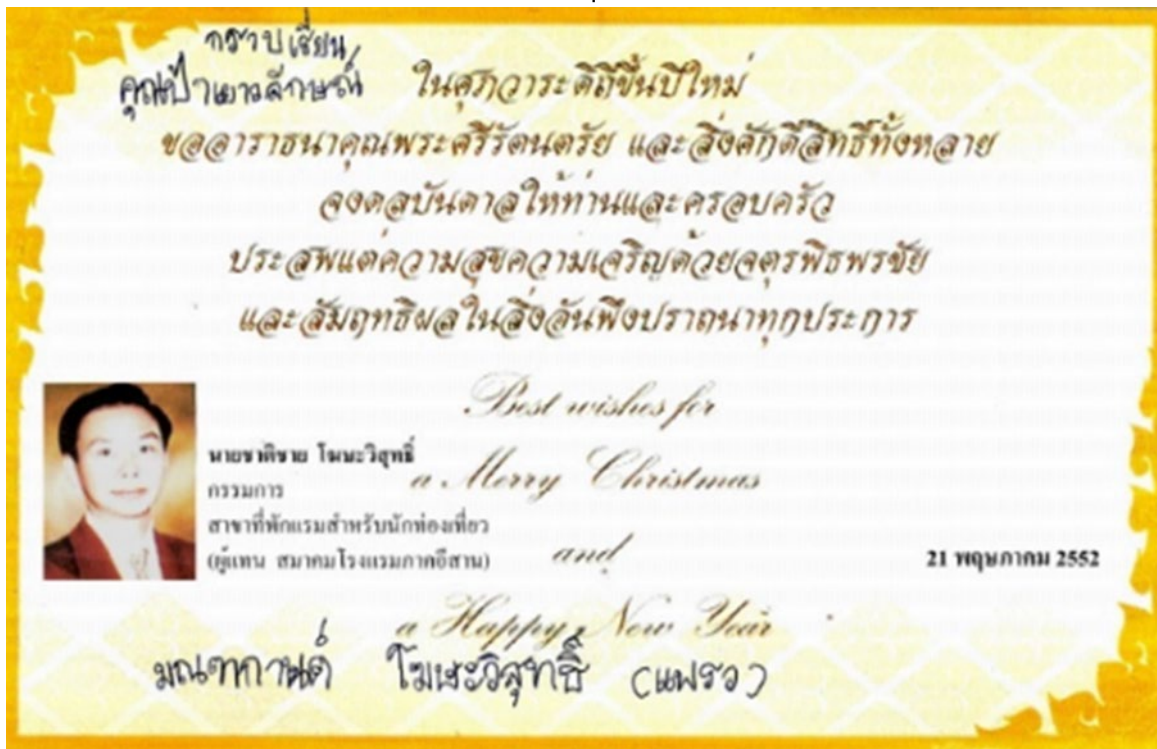 กราบเรียน
คุณป้าเยาวลักษณ์
ในศุภวาระดิถีขึ้นปีใหม่
ขออาราธนาคุณพระศรีรัตนตรัย และสิ่งศักดิ์สิทธิ์ทั้งหลาย
จงดลบันดาลให้ท่านและครอบครัว
ประสพแต่ความสุขความเจริญด้วยจตุรพิธพรชัย
และสัมฤทธิผลในสิ่งอันพึงปราถนาทุกประการ
Best wishes for
นายชาติชาย โฆษะวิสุทธิ์
a Merry Christmas
กรรมการ
สาขาที่พักแรมสำหรับนักท่องเที่ยว
(ผู้แทน สมาคมโรงแรมภาคอีสาน)
and
21 พฤษภาคม 2552
a Happy New Year
มณฑกานต์ โฆษะวิสุทธิ์ (แพรว)